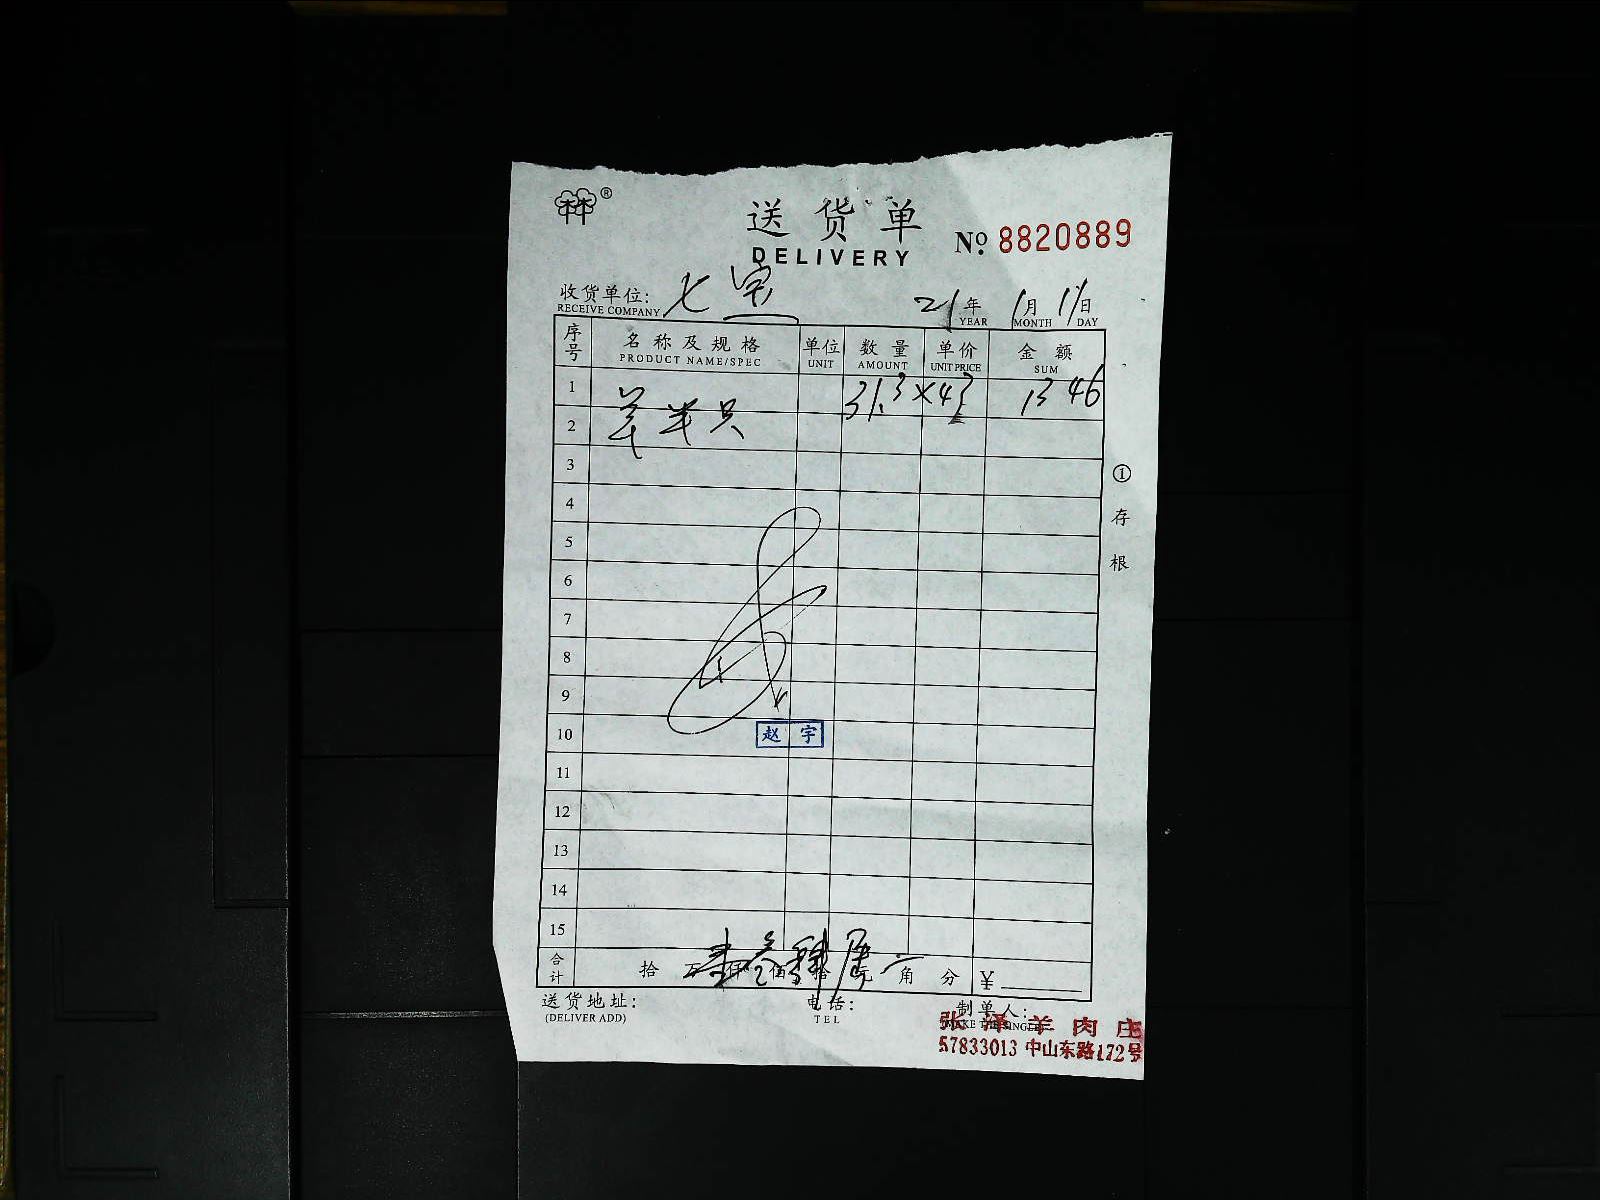 林®
送货单
DELIVERY
No. 8820889
收货单位: 七宝
RECEIVE COMPANY
21年 1月 11日
YEAR MONTH DAY
序号 名称及规格 单位 数量 单价 金额
PRODUCT NAME/SPEC UNIT AMOUNT UNIT PRICE SUM
1 31.3×43 1346
2 羊半只
3
4
5
6
7
8
9
10
赵宇
11
12
13
14
15
合计 拾 万 仟 佰 拾 元 角 分 ¥
送货地址: 电话: 制单人:
(DELIVER ADD) TEL
张泽羊肉庄
57833013 中山东路172号
①存根